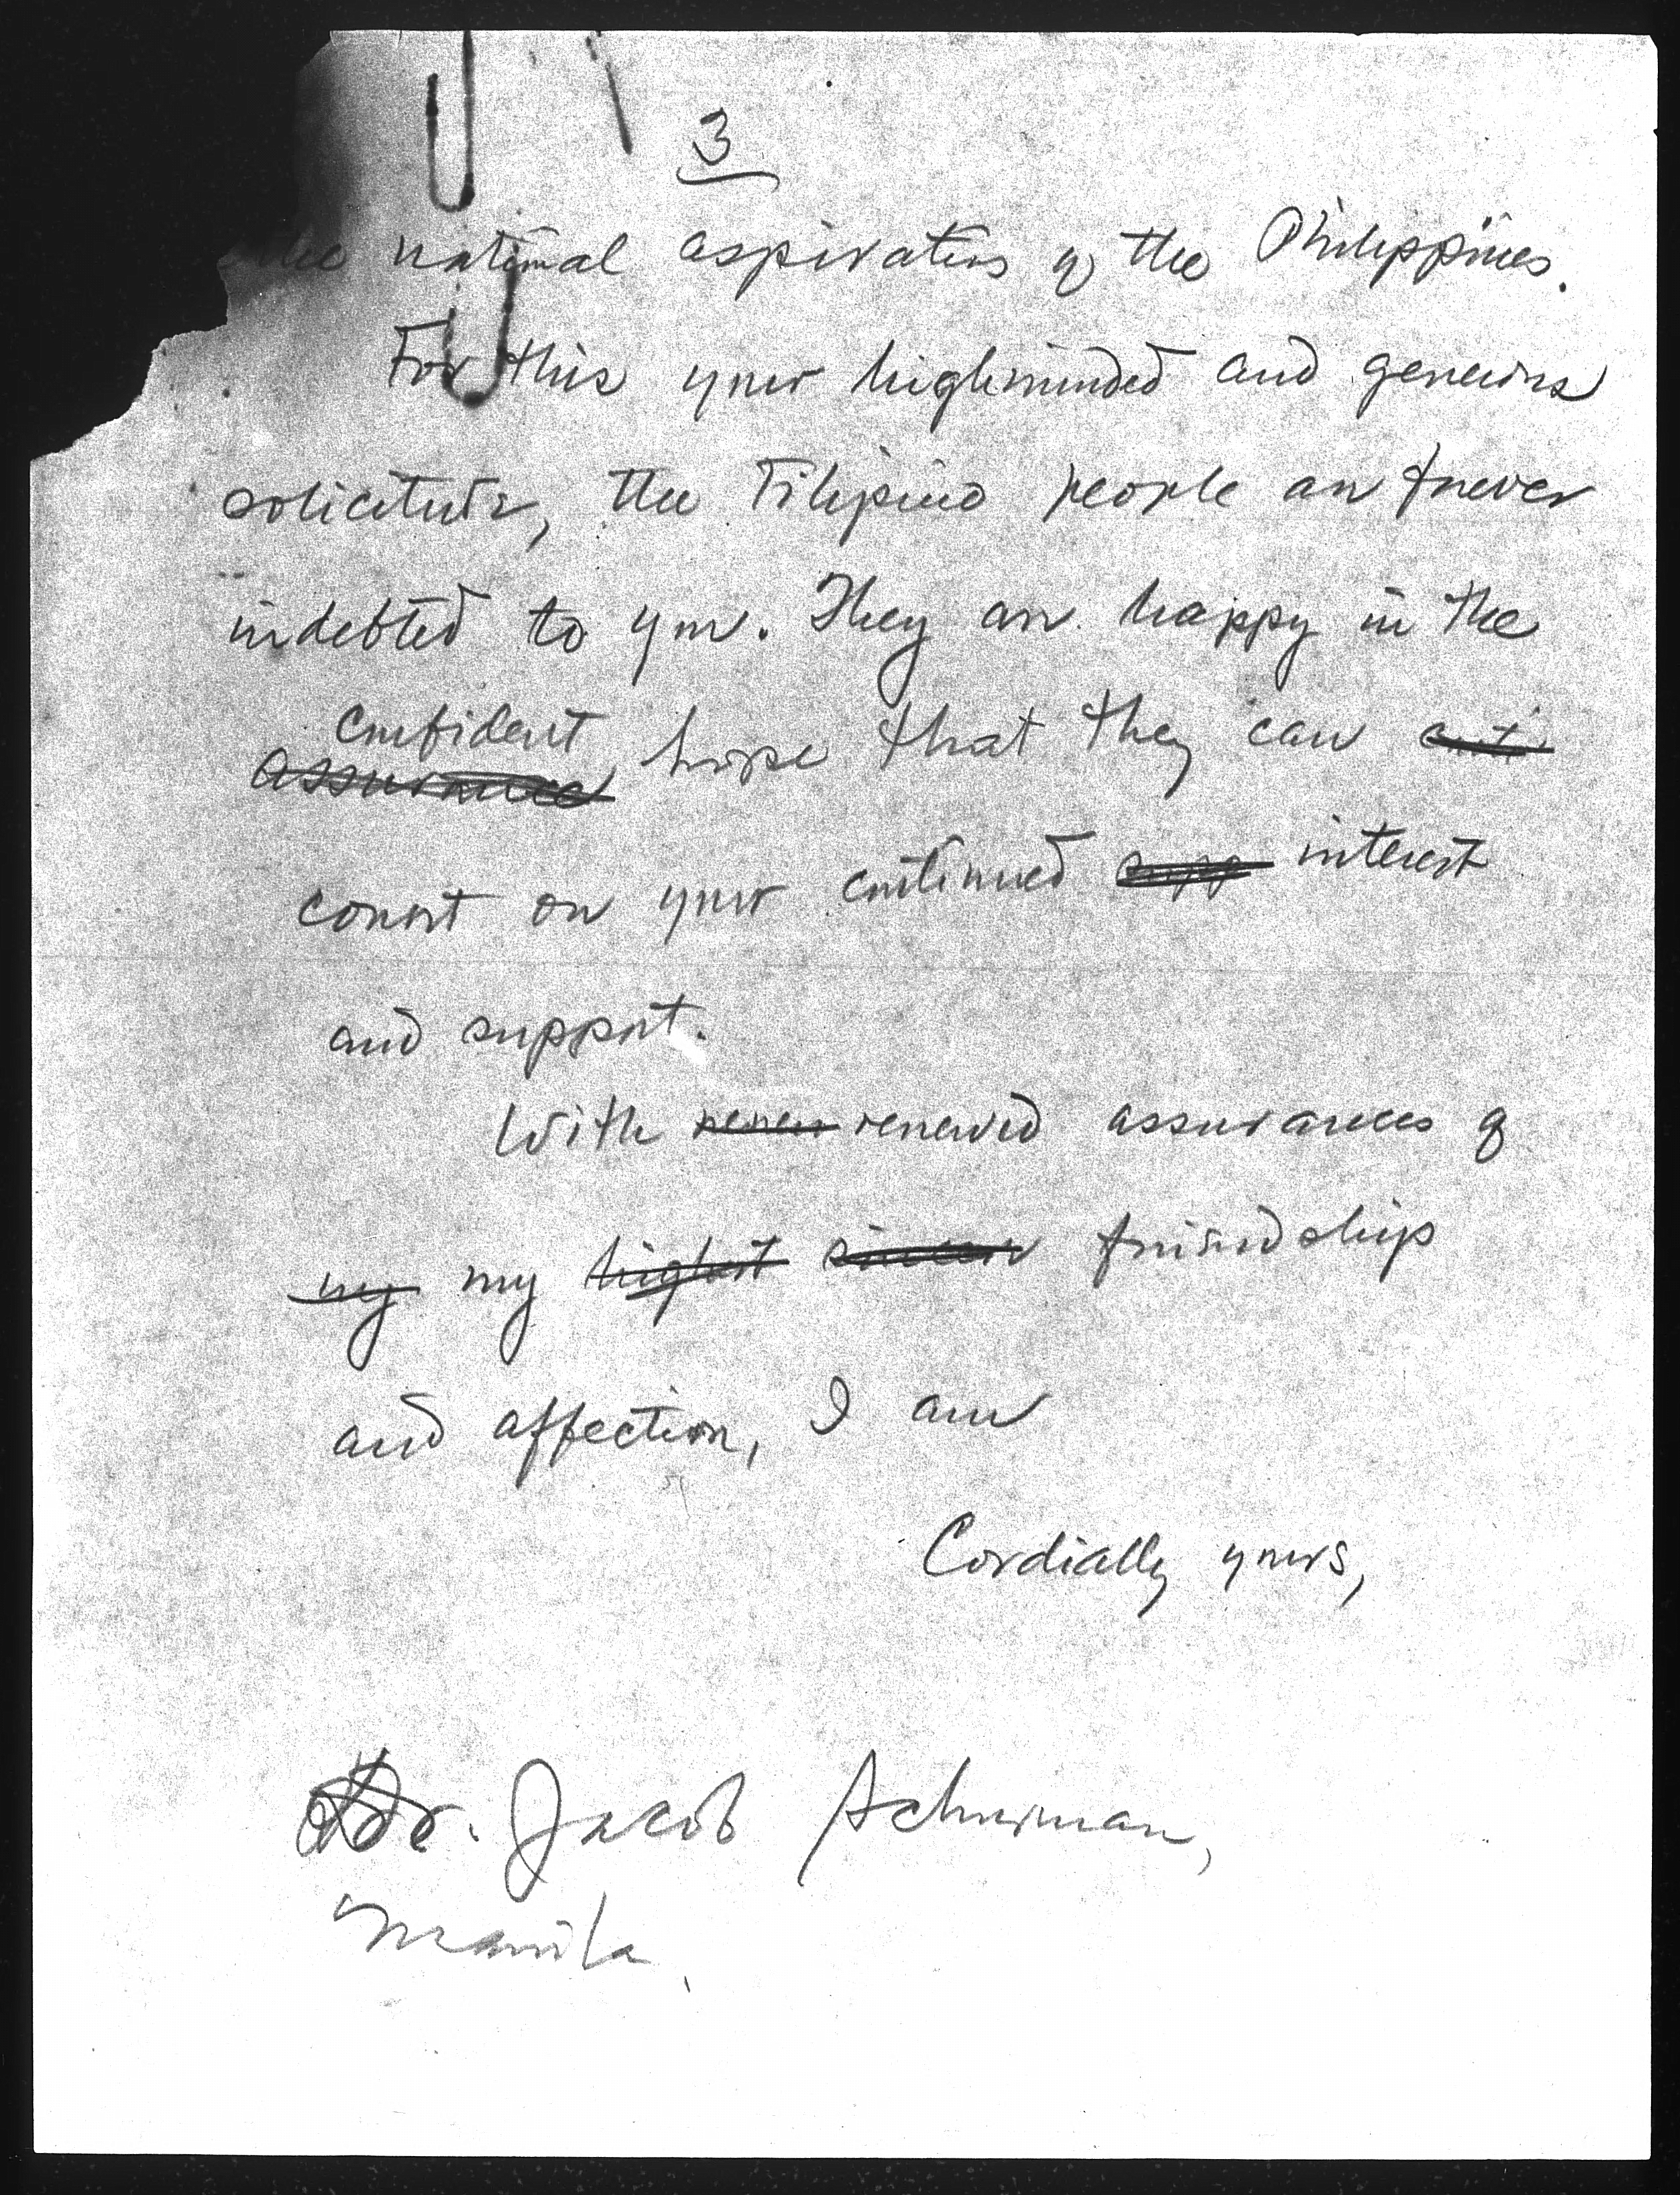 3
the national aspirations of the Philippines.
For this your highminded and generous
solicitude, the Filipino people are forever
indebted to you. They are happy in the
confident
assurance hope that they can
count on your continued supp interest
and support.
With renew renewed assurances of
my my highest sincere friendship
and affection, I am
Cordially yours,
Dr. Jacob Schurman,
Manila.